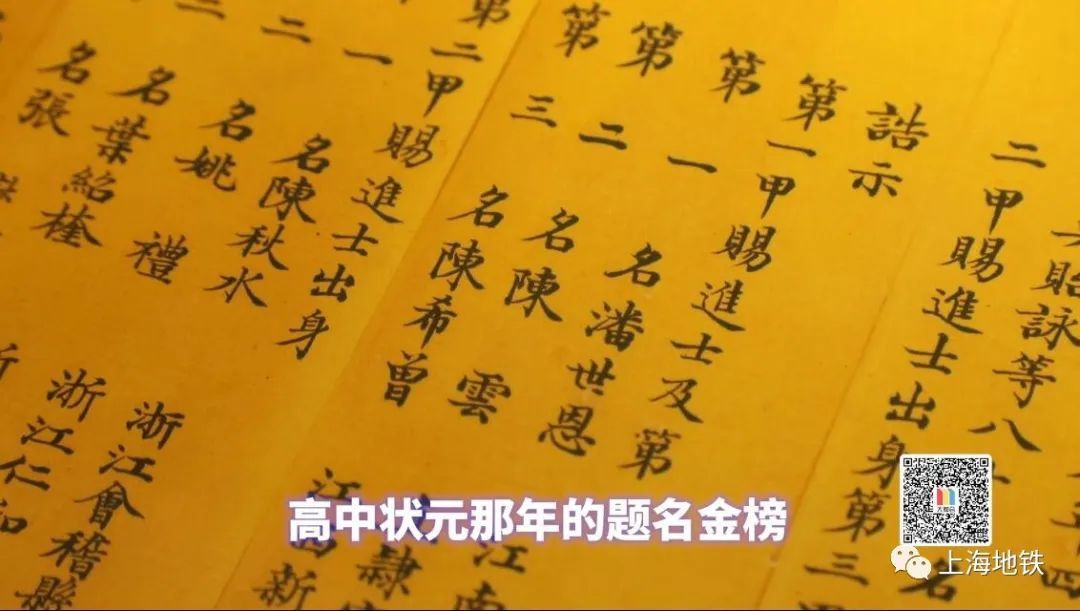 貽詠等八
二甲賜進士出身第三
名
誥示
第一甲賜進士及第
第一名潘世恩 江南
第二名陳雲 隸
第三名陳希曾 江西新
第二甲賜進士出身
一名陳秋水 浙江會稽縣
二名姚禮 浙江仁和
三名葉紹楏
名張
高中状元那年的题名金榜
上海地铁